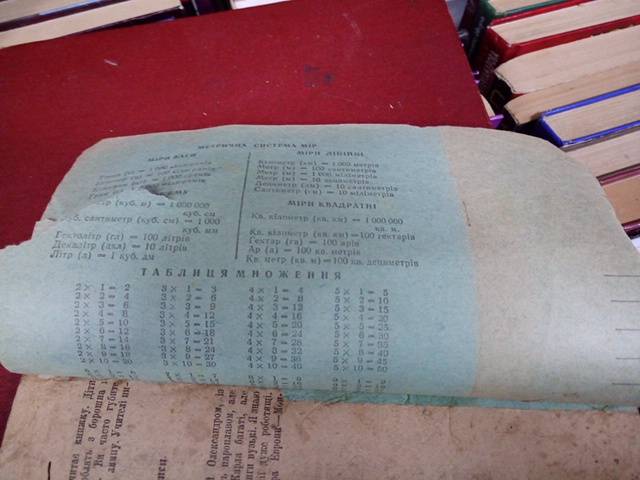 МЕТРИЧНА СИСТЕМА МІР
МІРИ ВАГИ
(куб. м) = 1 000 000
куб. см
Куб. сантиметр (куб. см) = 1 000
куб. мм
Гектолітр (гл) = 100 літрів
Декалітр (дкл) = 10 літрів
Літр (л) = 1 куб. дм
МІРИ ЛІНІЙНІ
Кілометр (км) = 1 000 метрів
Метр (м) = 100 сантиметрів
Метр (м) = 1 000 міліметрів
Метр (м) = 10 дециметрів
Дециметр (дм) = 10 сантиметрів
Сантиметр (см) = 10 міліметрів
МІРИ КВАДРАТНІ
Кв. кілометр (кв. км) = 1 000 000
кв. м.
Кв. кілометр (кв. км) = 100 гектарів
Гектар (га) = 100 арів
Ар (а) = 100 кв. метрів
Кв. метр (кв. м) = 100 кв. дециметрів
ТАБЛИЦЯ МНОЖЕННЯ
2 × 1 = 2 3 × 1 = 3 4 × 1 = 4 5 × 1 = 5
2 × 2 = 4 3 × 2 = 6 4 × 2 = 8 5 × 2 = 10
2 × 3 = 6 3 × 3 = 9 4 × 3 = 12 5 × 3 = 15
2 × 4 = 8 3 × 4 = 12 4 × 4 = 16 5 × 4 = 20
2 × 5 = 10 3 × 5 = 15 4 × 5 = 20 5 × 5 = 25
2 × 6 = 12 3 × 6 = 18 4 × 6 = 24 5 × 6 = 30
2 × 7 = 14 3 × 7 = 21 4 × 7 = 28 5 × 7 = 35
2 × 8 = 16 3 × 8 = 24 4 × 8 = 32 5 × 8 = 40
2 × 9 = 18 3 × 9 = 27 4 × 9 = 36 5 × 9 = 45
2 × 10 = 20 3 × 10 = 30 4 × 10 = 40 5 × 10 = 50
читає книжку. Діти
з борошна
Ви часто губите
лампу. Учителі
Олександром, їх
пароплавом, але
Карла багаті, але
вузькі. Я знаю
дуже роботящі.
Европи